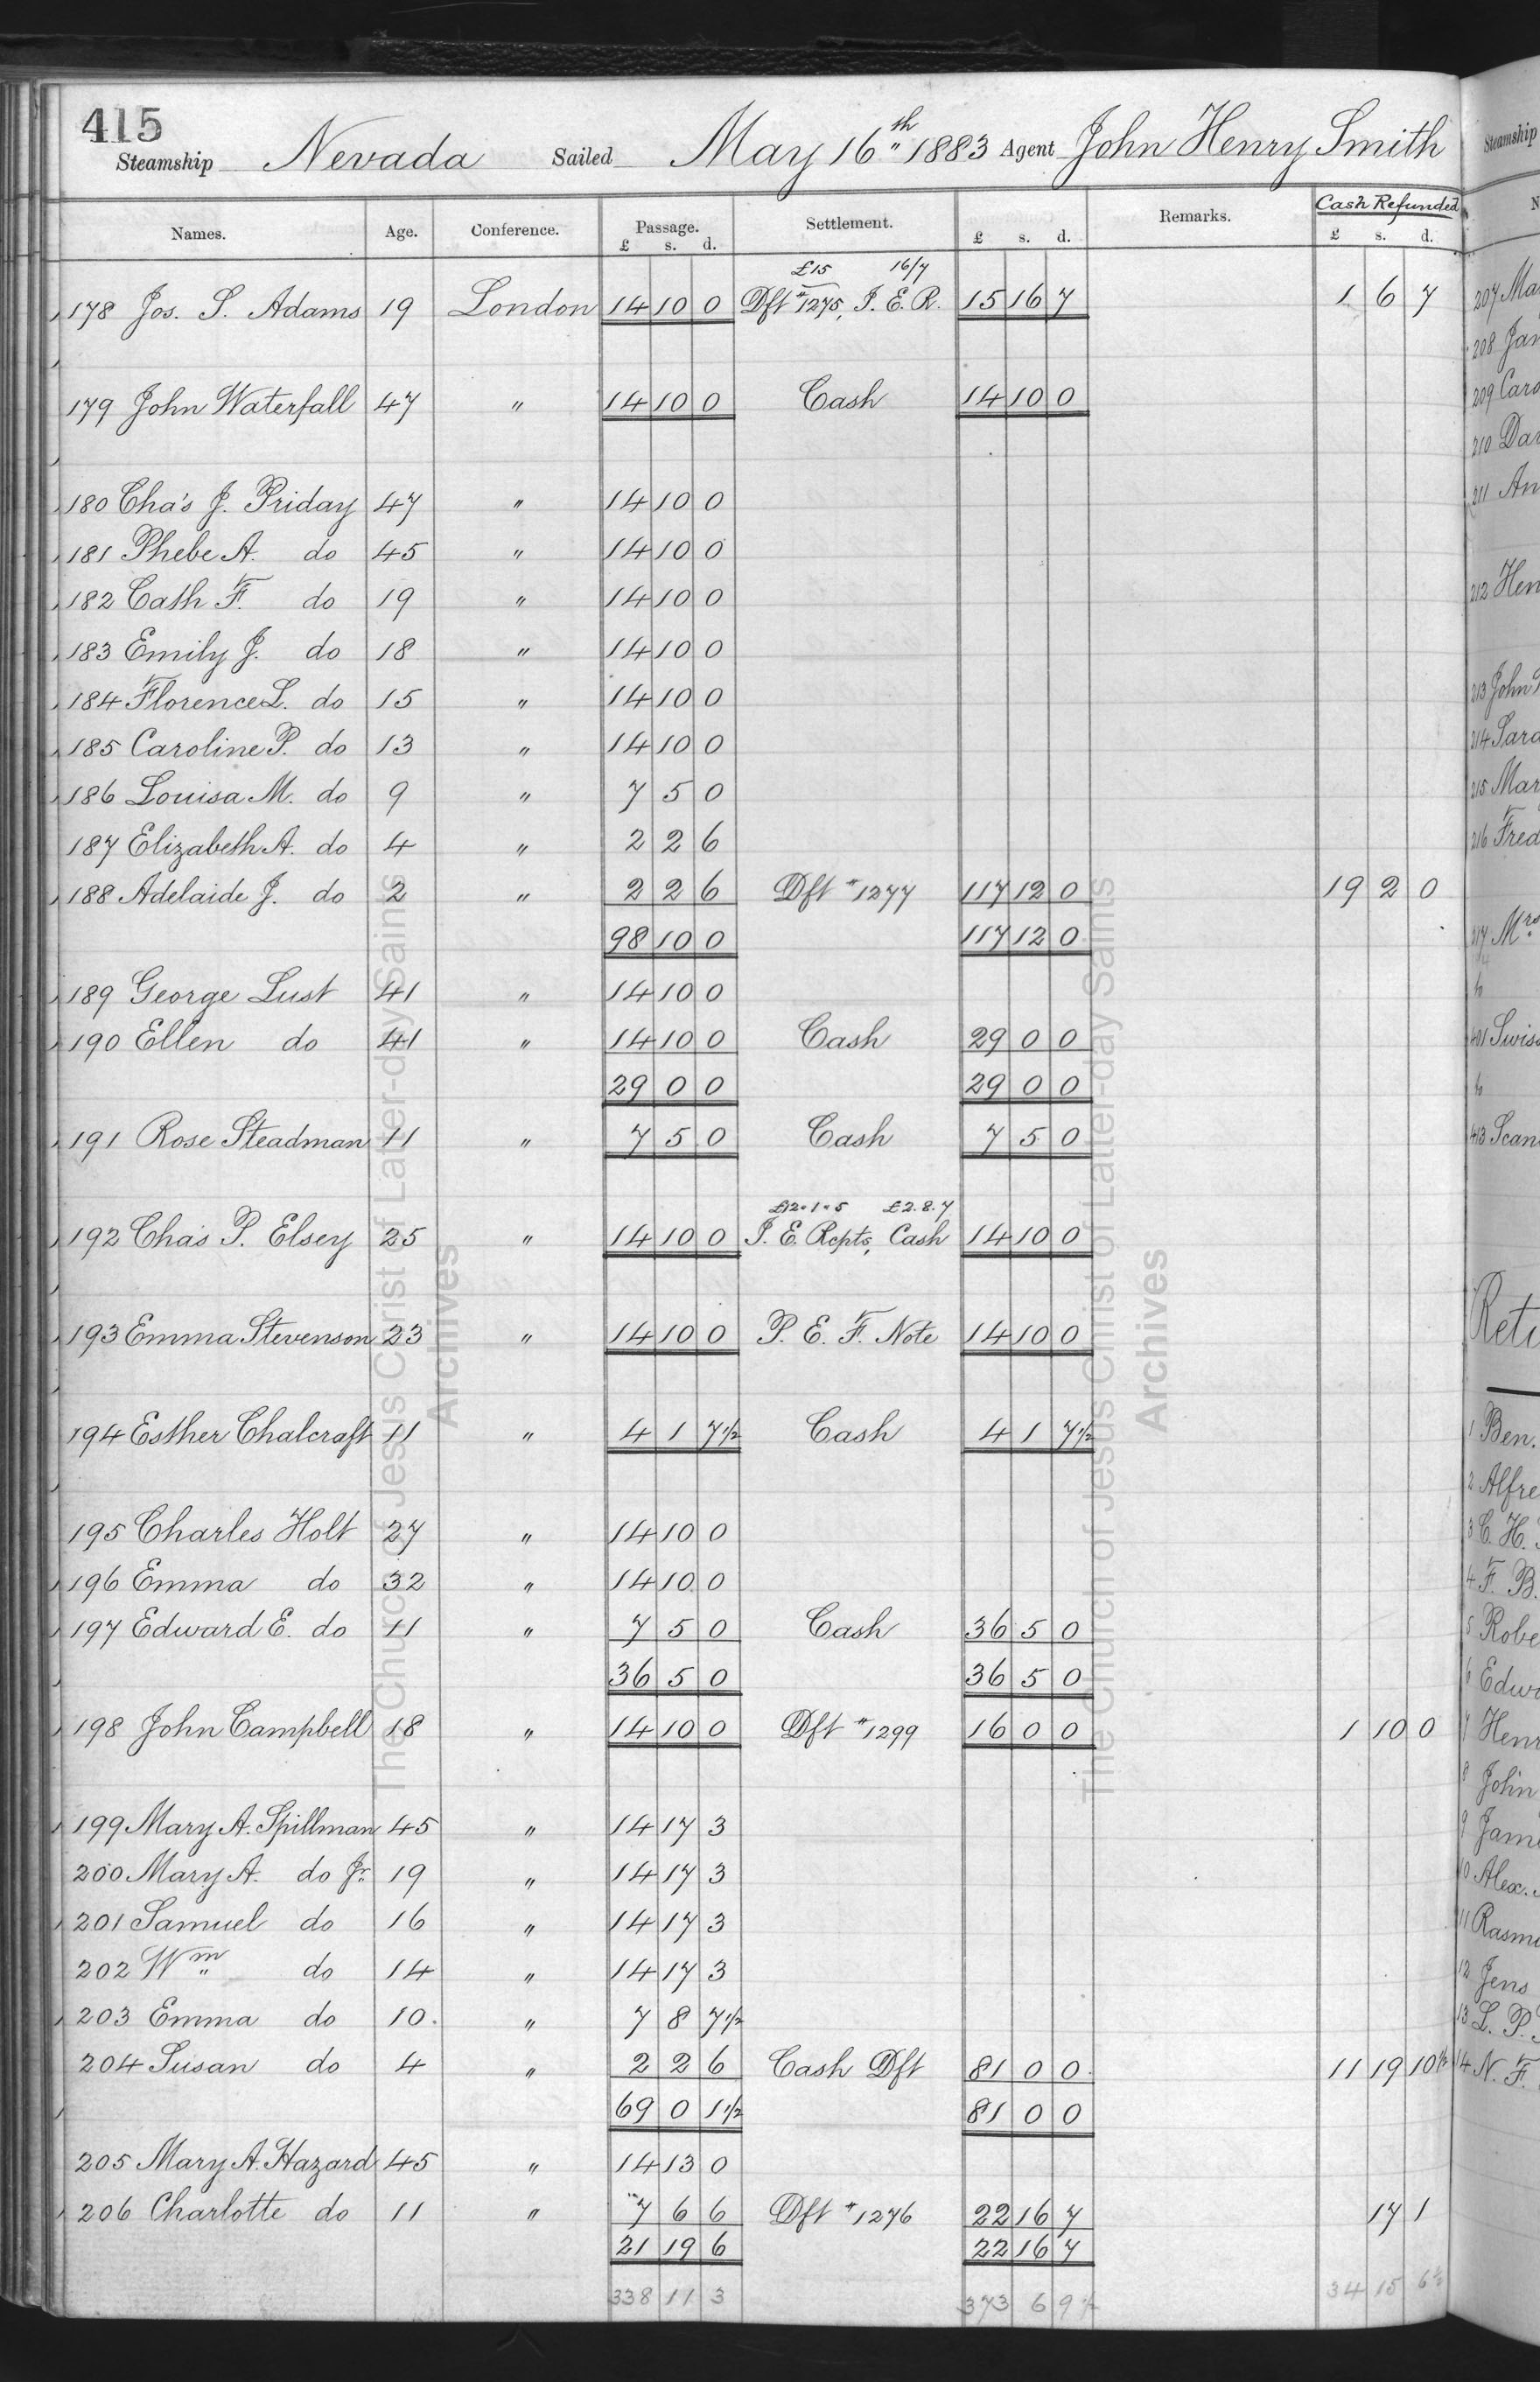 415
Steamship Nevada Sailed May 16th 1883 Agent John Henry Smith
Names. Age. Conference. Passage. Settlement. Remarks. Cash Refunded
£ s. d. £ s. d. £ s. d.
£15 16/7
178 Jos. S. Adams 19 London 14 10 0 Dft #1275, I. E. R. 15 16 7 1 6 7
179 John Waterfall 47 " 14 10 0 Cash 14 10 0
180 Cha's J. Priday 47 " 14 10 0
181 Phebe A. do 45 " 14 10 0
182 Cath F. do 19 " 14 10 0
183 Emily J. do 18 " 14 10 0
184 Florence L. do 15 " 14 10 0
185 Caroline P. do 13 " 14 10 0
186 Louisa M. do 9 " 7 5 0
187 Elizabeth A. do 4 " 2 2 6
188 Adelaide J. do 2 " 2 2 6 Dft #1277 117 12 0 19 2 0
98 10 0 117 12 0
189 George Lust 41 " 14 10 0
190 Ellen do 41 " 14 10 0 Cash 29 0 0
29 0 0 29 0 0
191 Rose Steadman 11 " 7 5 0 Cash 7 5 0
£12.1.5 £2.8.7
192 Chas P. Elsey 25 " 14 10 0 I. E. Rcpts, Cash 14 10 0
193 Emma Stevenson 23 " 14 10 0 P. E. F. Note 14 10 0
194 Esther Chalcraft 11 " 4 1 7½ Cash 4 1 7½
195 Charles Holt 27 " 14 10 0
196 Emma do 32 " 14 10 0
197 Edward E. do 11 " 7 5 0 Cash 36 5 0
36 5 0 36 5 0
198 John Campbell 18 " 14 10 0 Dft #1299 16 0 0 1 10 0
199 Mary A. Spillman 45 " 14 17 3
200 Mary A. do Jr. 19 " 14 17 3
201 Samuel do 16 " 14 17 3
202 Wm do 14 " 14 17 3
203 Emma do 10. " 7 8 7½
204 Susan do 4 " 2 2 6 Cash Dft 81 0 0 11 19 10½
69 0 1½ 81 0 0
205 Mary A. Hazard 45 " 14 13 0
206 Charlotte do 11 " 7 6 6 Dft #1276 22 16 7 17 1
21 19 6 22 16 7
338 11 3 373 6 9½ 34 15 6½
The Church of Jesus Christ of Latter-day Saints
Archives
The Church of Jesus Christ of Latter-day Saints
Archives
Steamship